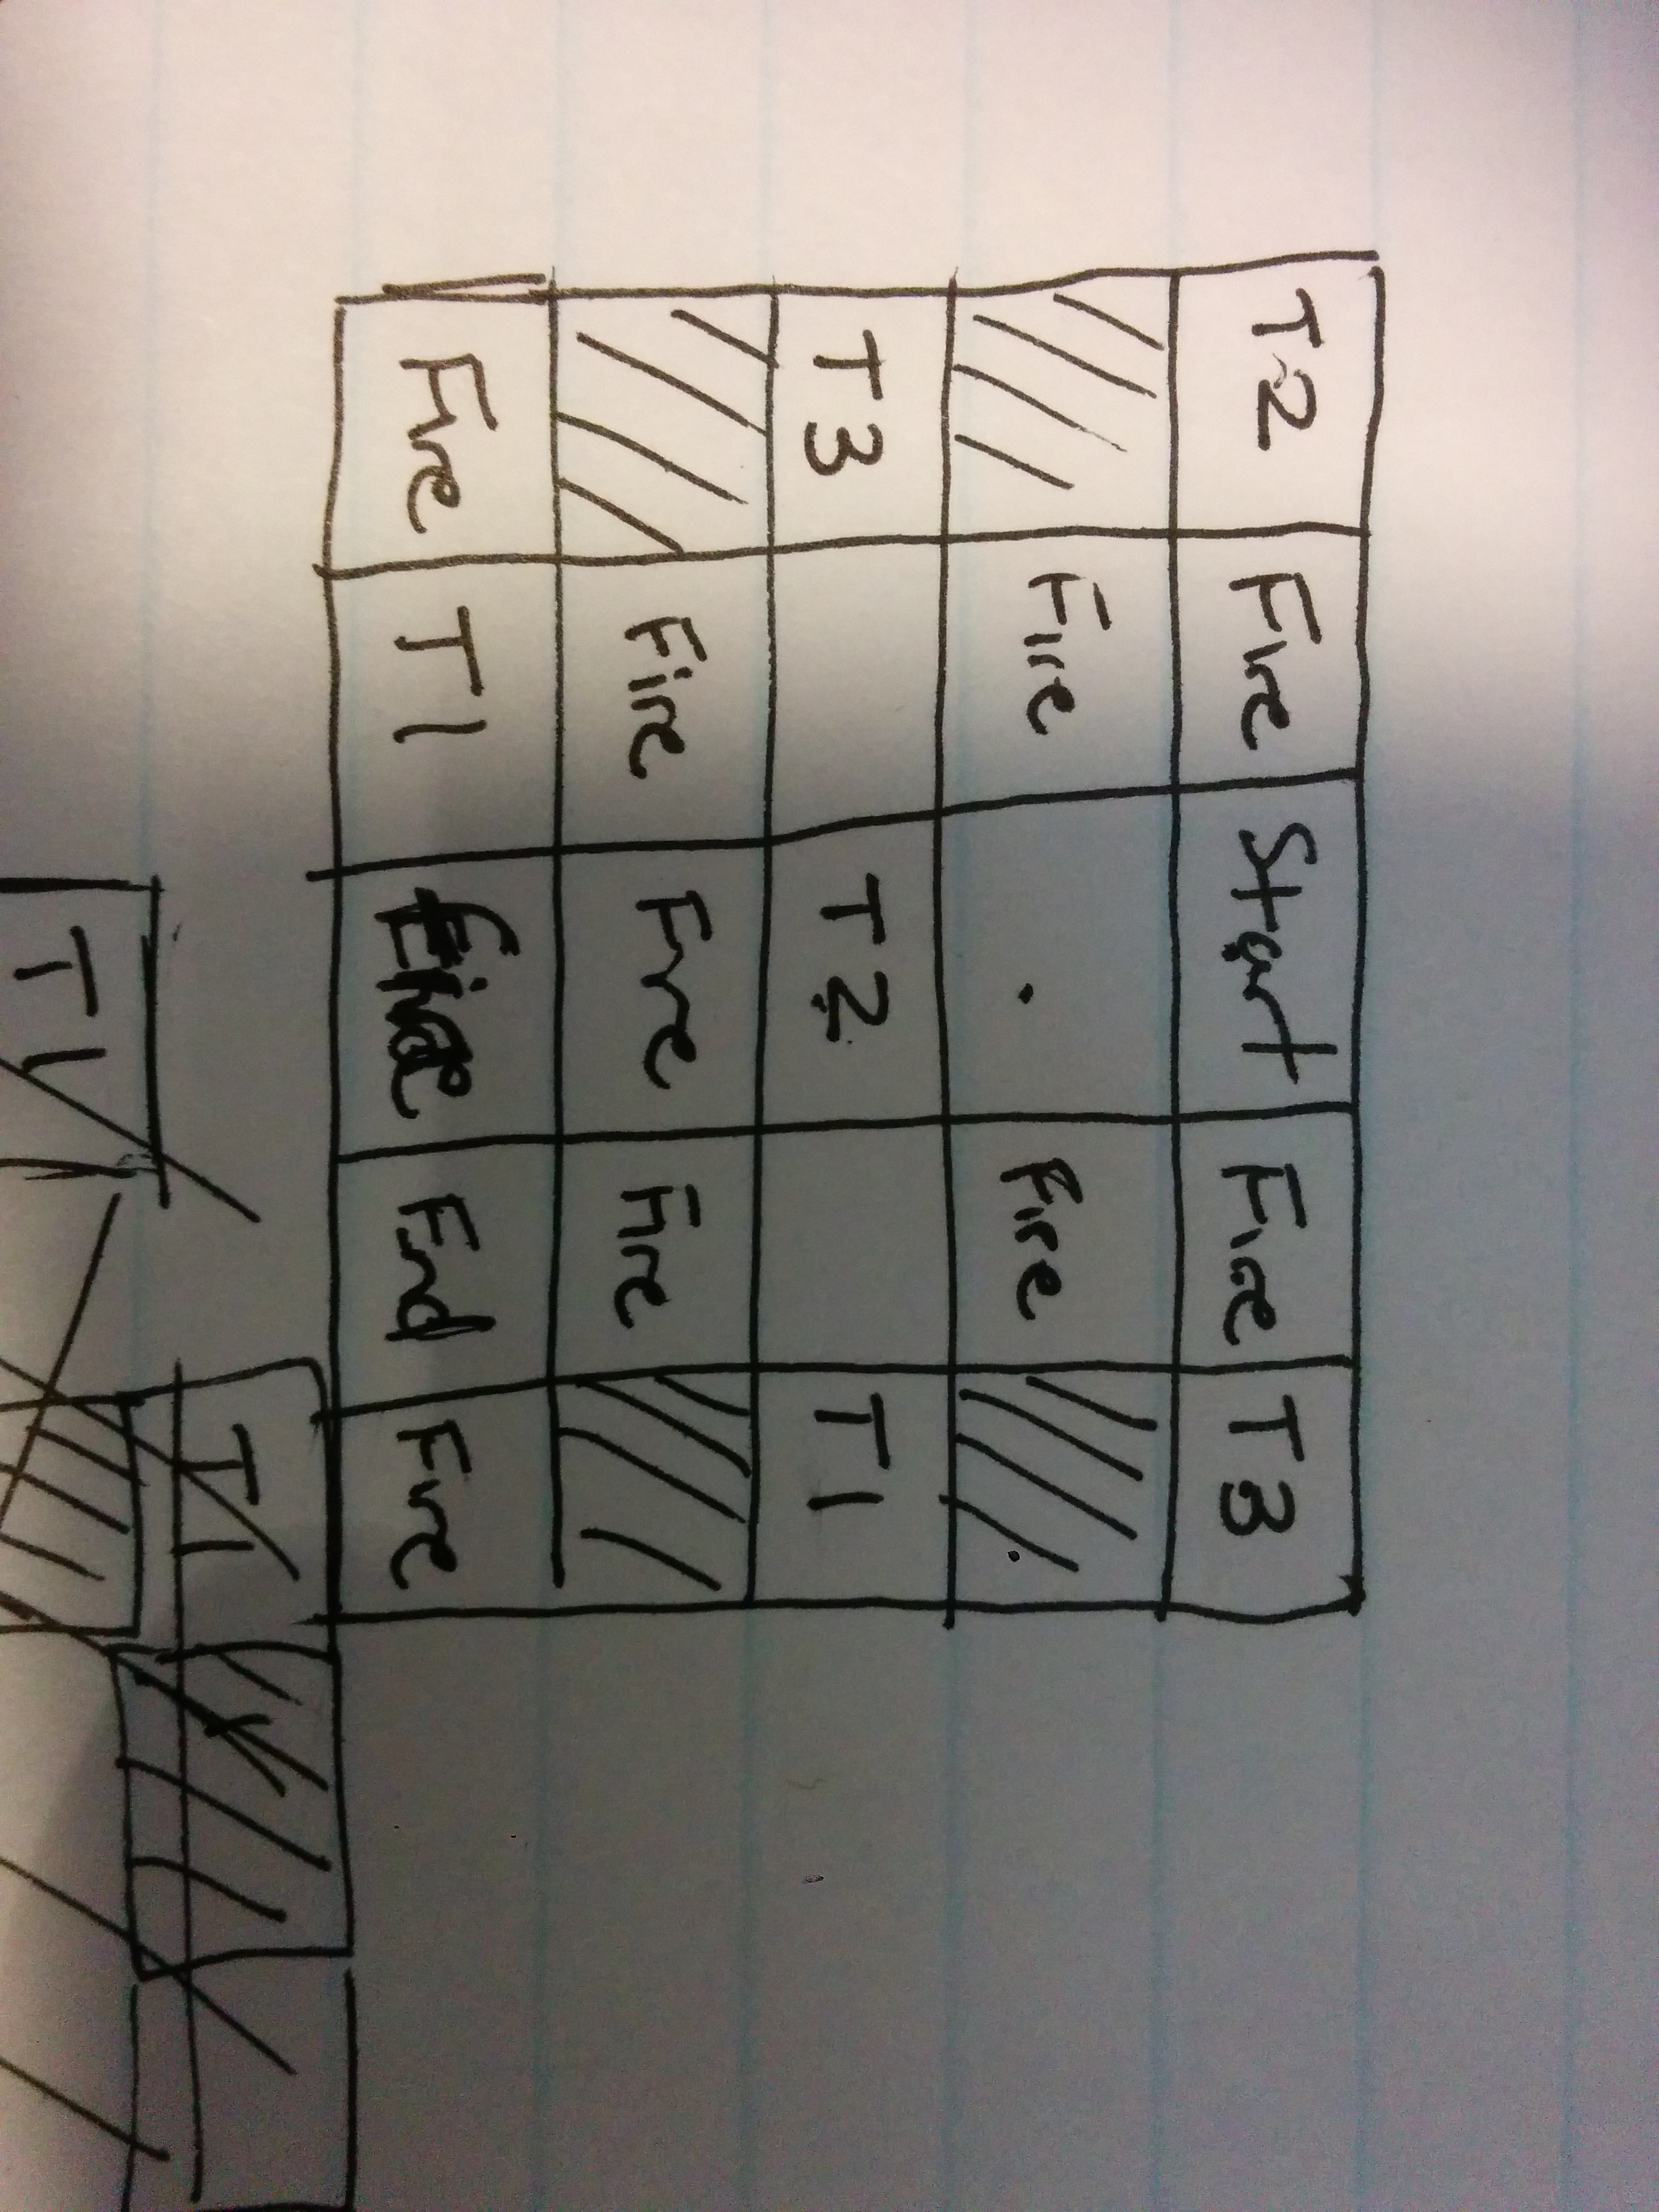 T2 Fire Start Fire T3
Fire Fire
T3 T2 T1
Fire Fire Fire
Fire T1 Fire End Fire
T1
T1